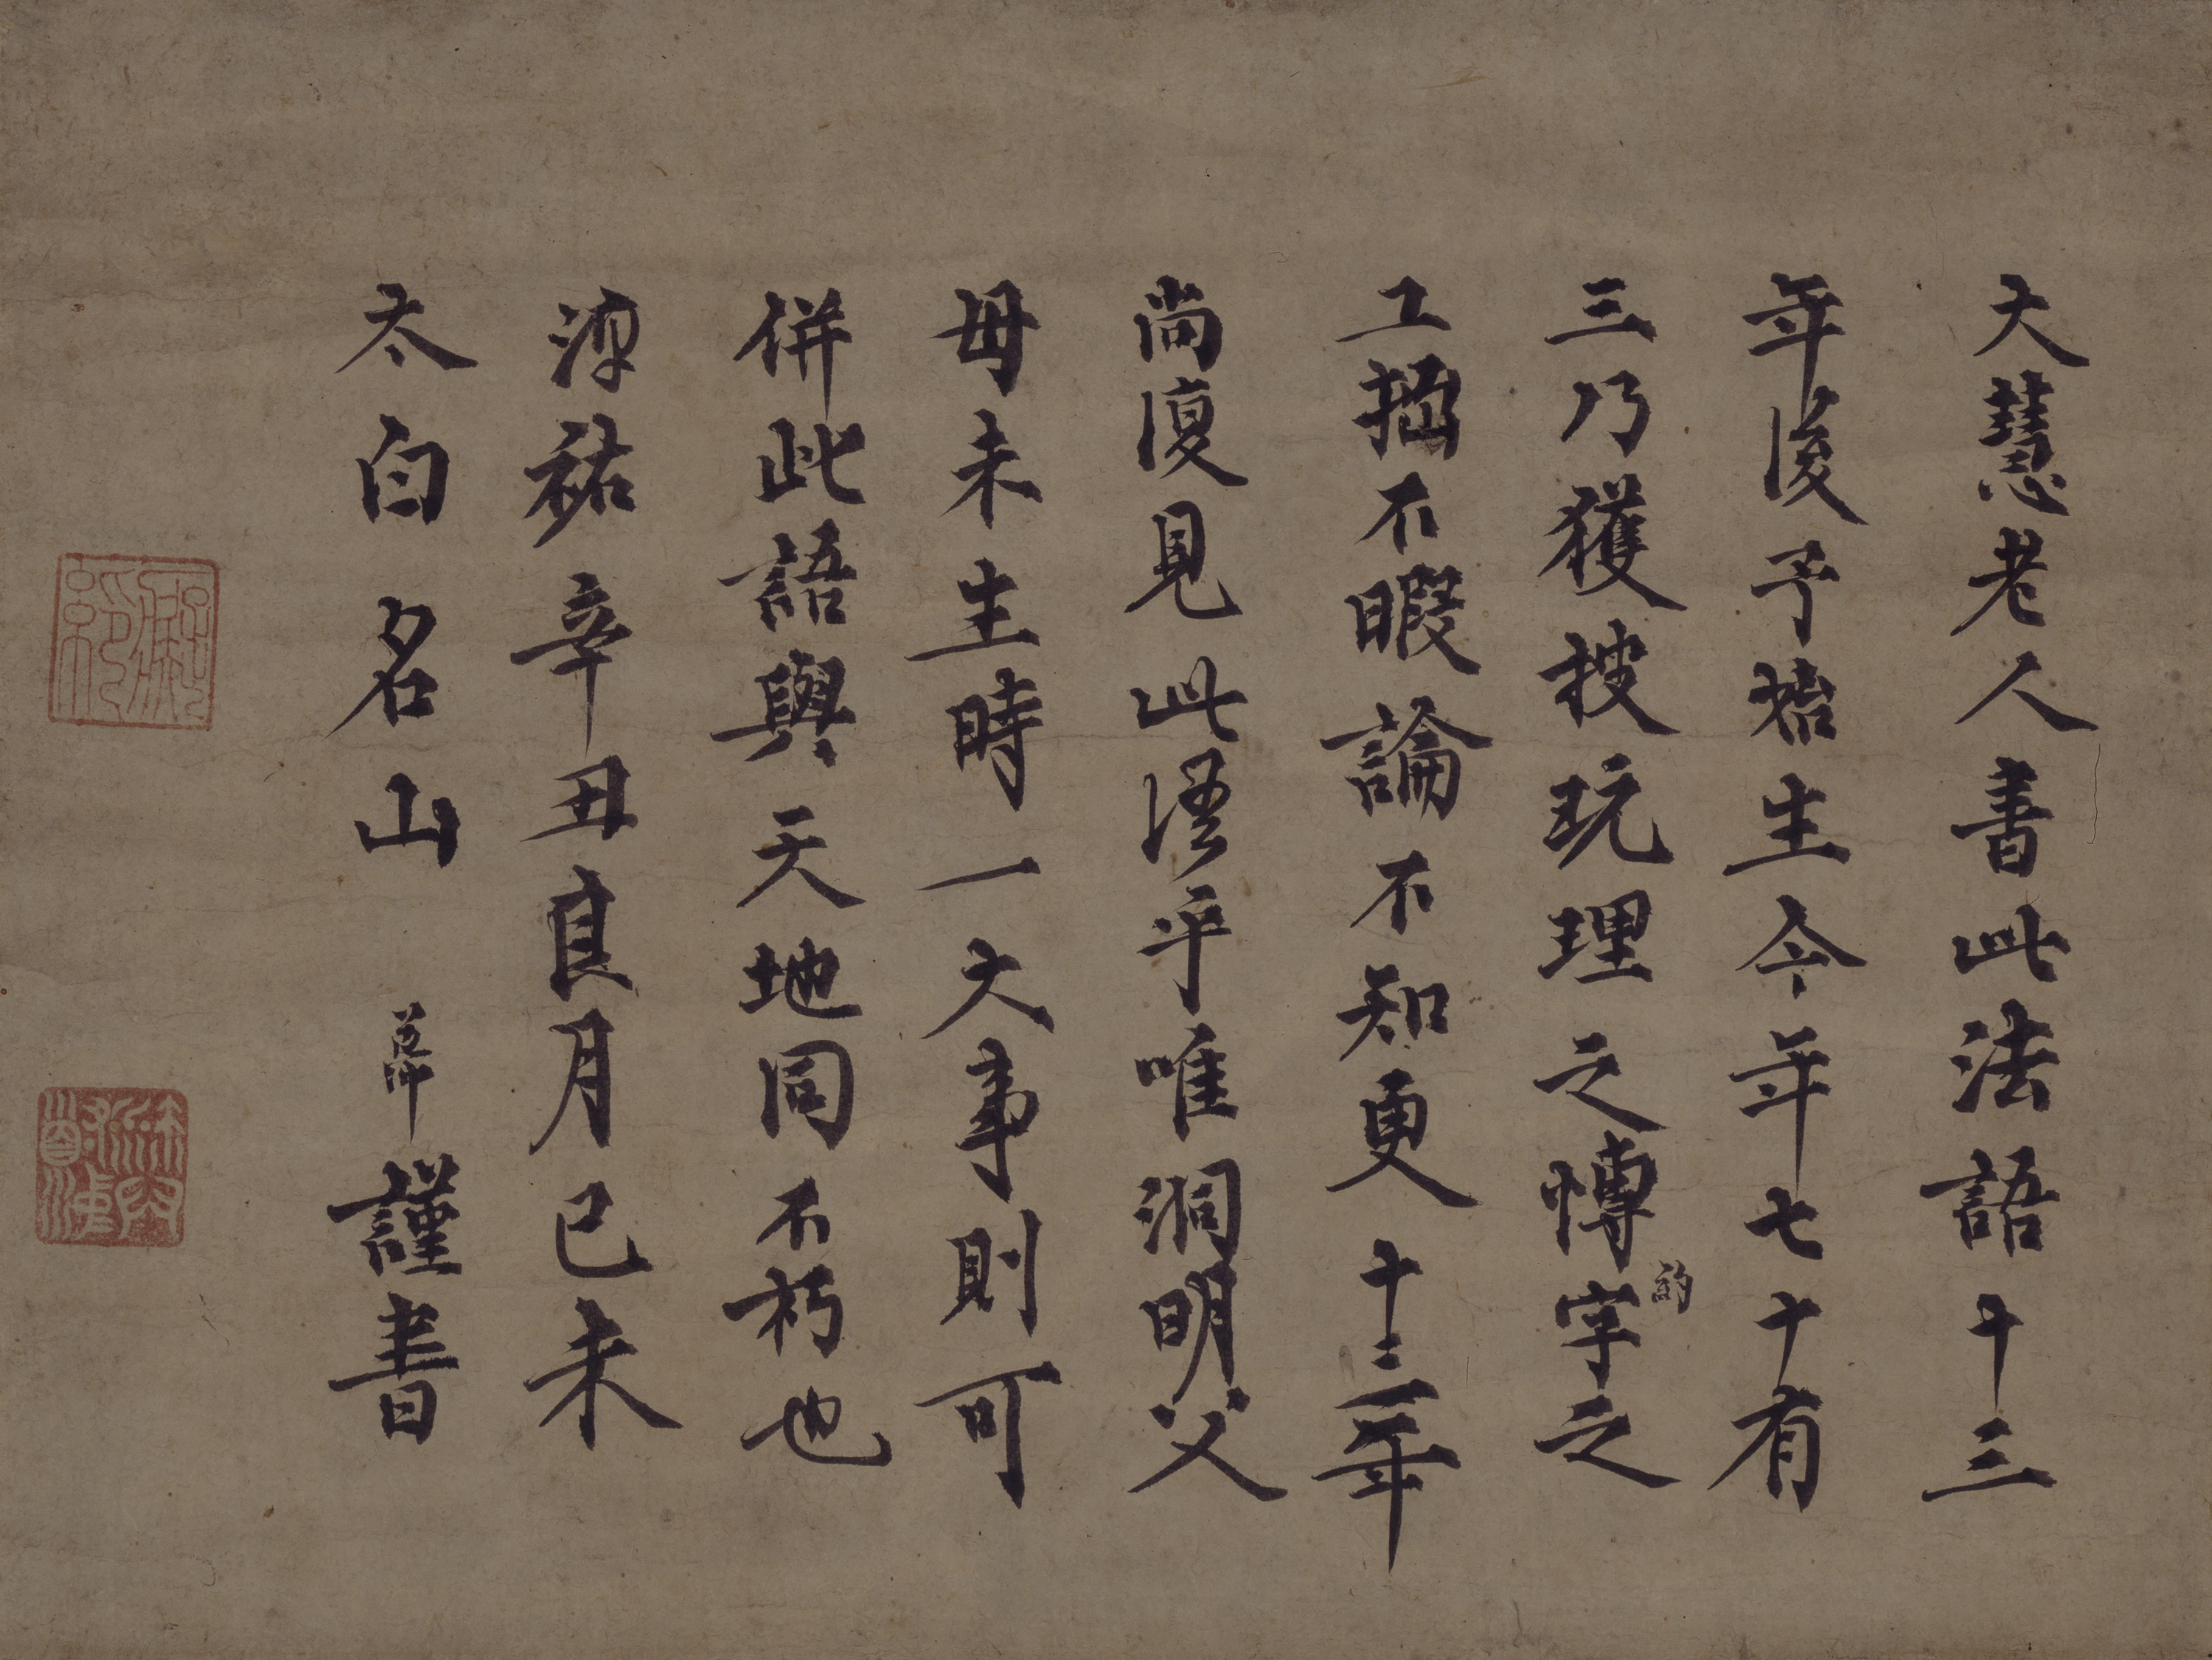 大慧老人書此法語十三
年後予始生今年七十有
三乃獲披玩理之慱字之
工拙不暇論不知更十三年
尚復見此墨乎唯洞明父
母未生時一大事則可
併此語與天地同不朽也
淳祐辛丑良月己未
太白名山 謹書